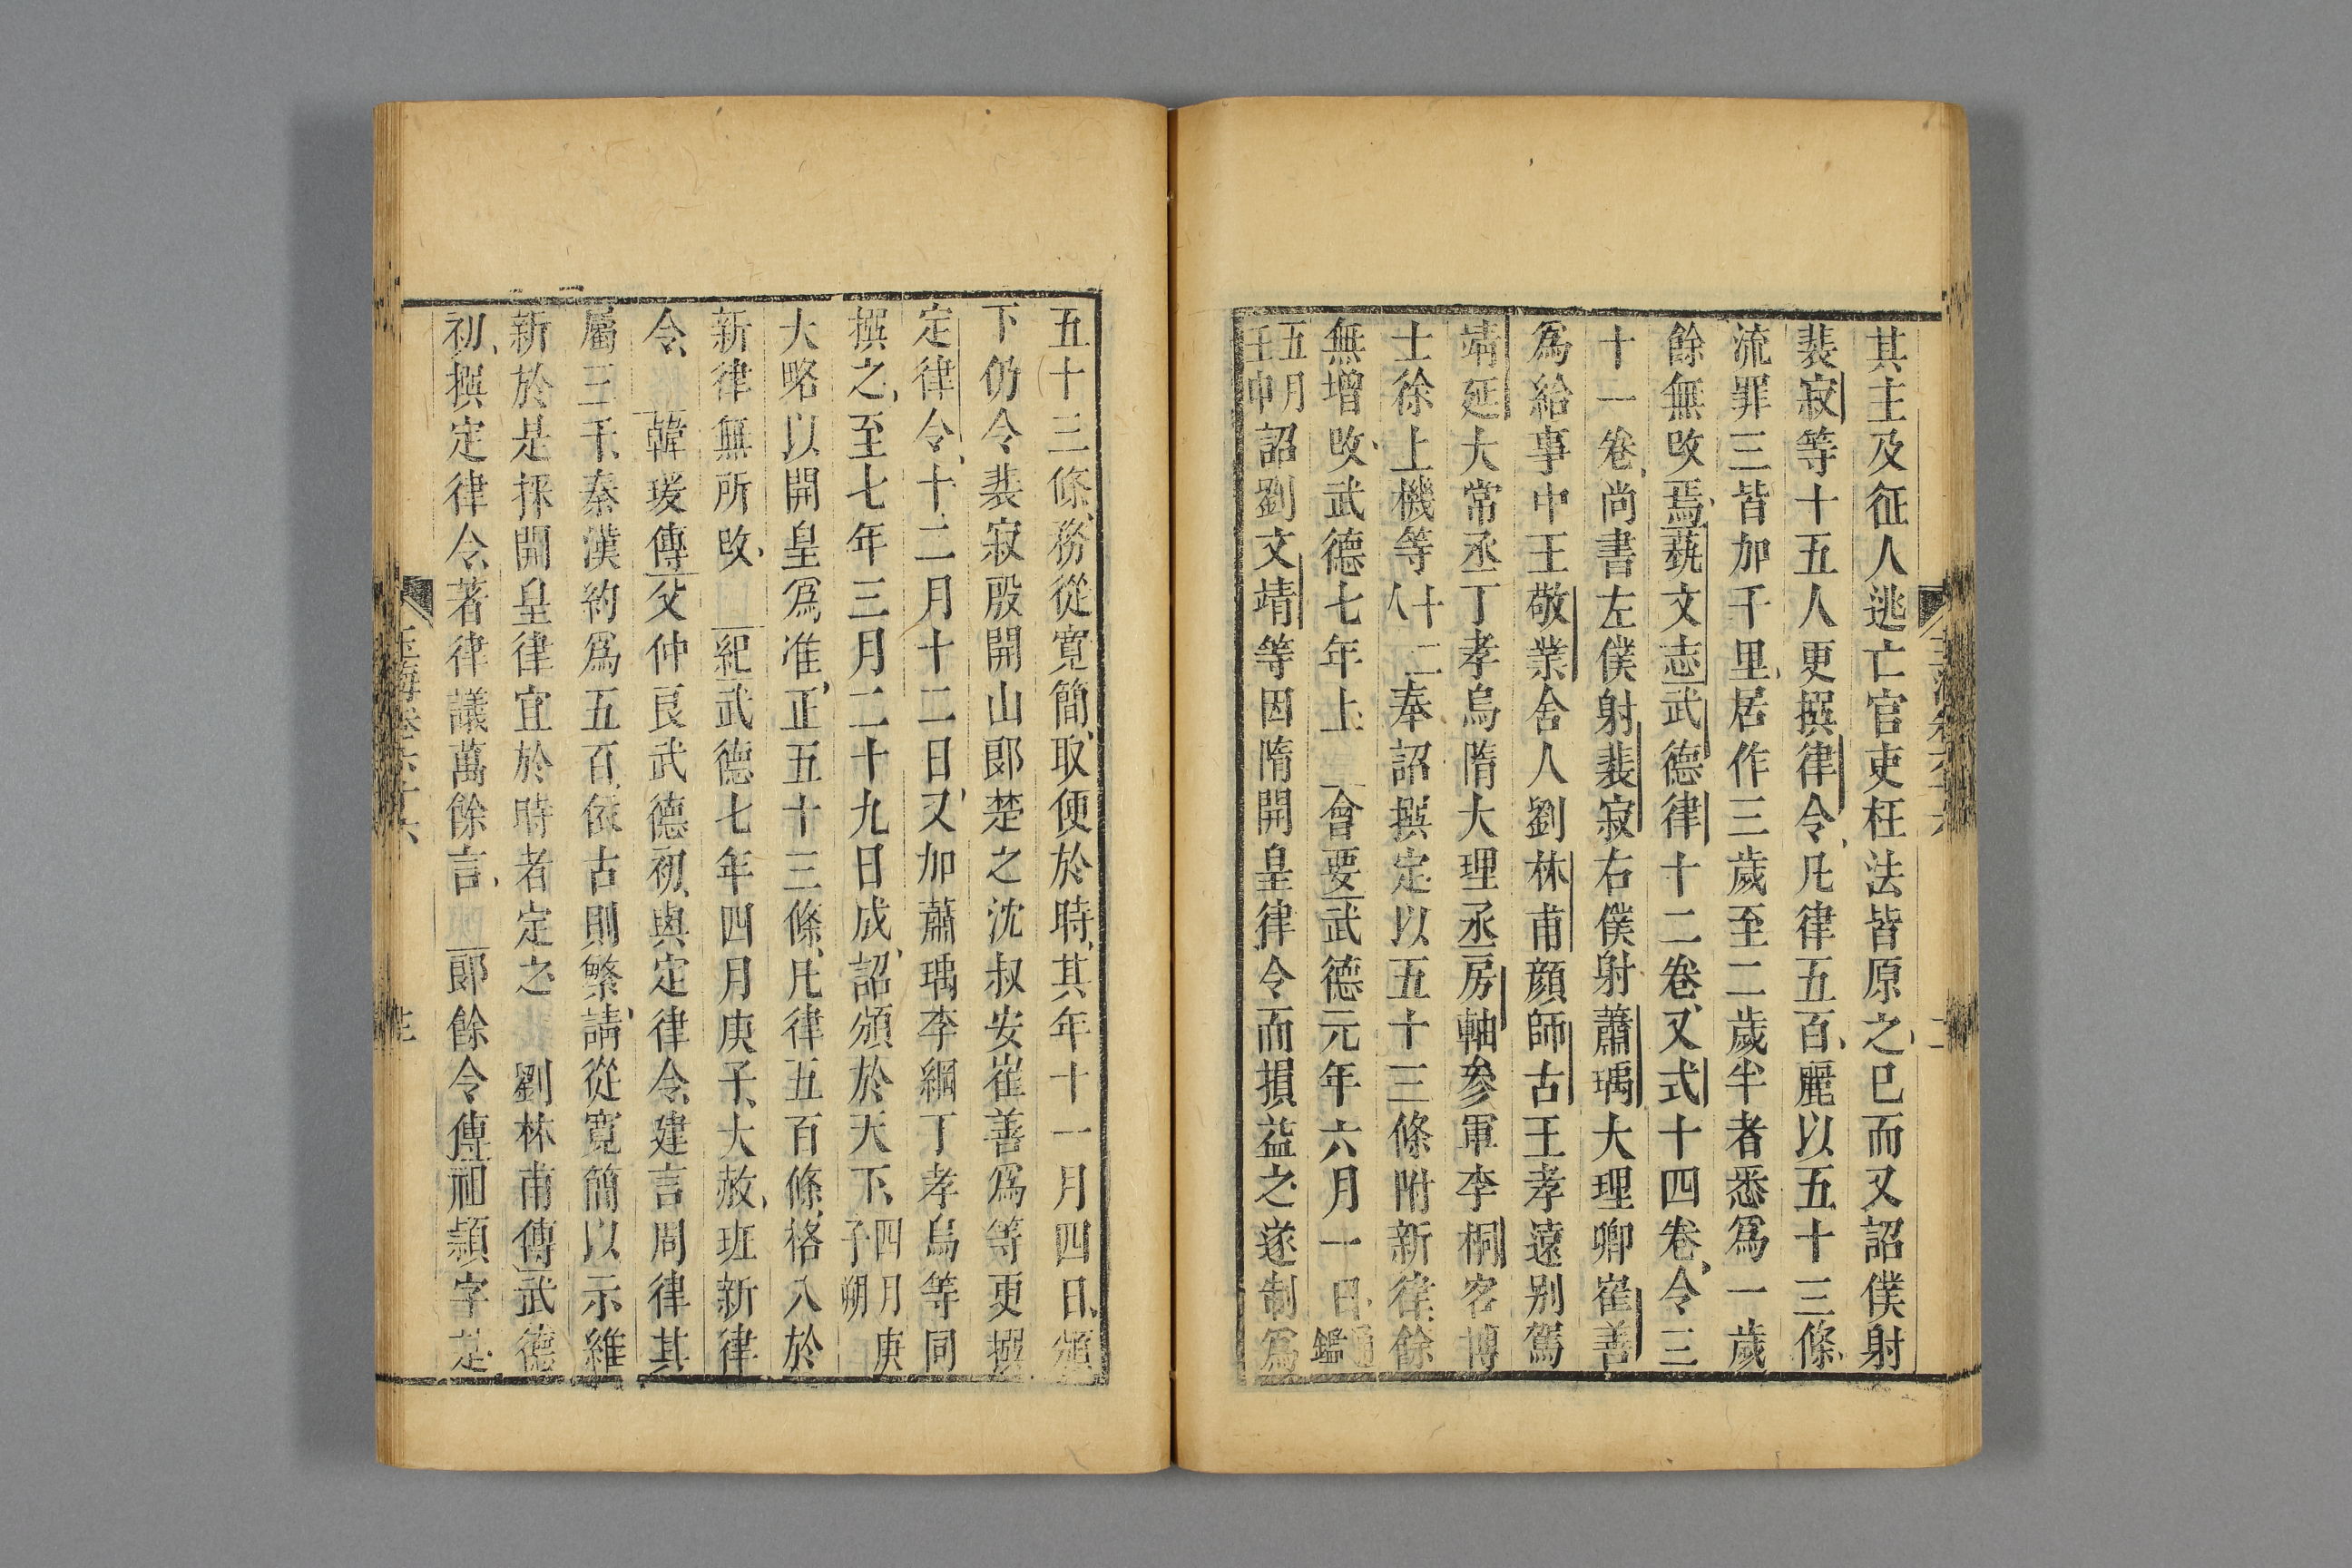 其主及征人逃亡官吏枉法皆原之已而又詔僕射
裴寂等十五人更撰律令凡律五百麗以五十三條
流罪三皆加千里居作三歲至二歲半者悉爲一歲
餘無改焉藝文志武德律十二卷又式十四卷令三
十一卷尚書左僕射裴寂右僕射蕭瑀大理卿崔善
爲給事中王敬業舍人劉林甫顔師古王孝遠别駕
靖延大常丞丁孝烏隋大理丞房軸參軍李桐客博
士徐上機等十二人奉詔撰定以五十三條附新律餘
無增改武德七年上 會要武德元年六月一日通鑑
五月壬申詔劉文靖等因隋開皇律令而損益之遂制爲
五十三條務從寛簡取便於時其年十一月四日頒
下仍令裴寂殷開山郎楚之沈叔安崔善爲等更撰
定律令十二月十二日又加蕭瑀李綱丁孝烏等同
撰之至七年三月二十九日成詔頒於天下四月庚子朔
大略以開皇爲准正五十三條凡律五百條格入於
新律無所改 紀武德七年四月庚子大赦班新律
令 韓瑗傳父仲良武德初與定律令建言周律其
屬三千秦漢約爲五百依古則繁請從寛簡以示維
新於是採開皇律宜於時者定之 劉林甫傳武德
初撰定律令著律議萬餘言 郎餘令傳祖頴字楚
玉海卷六十六